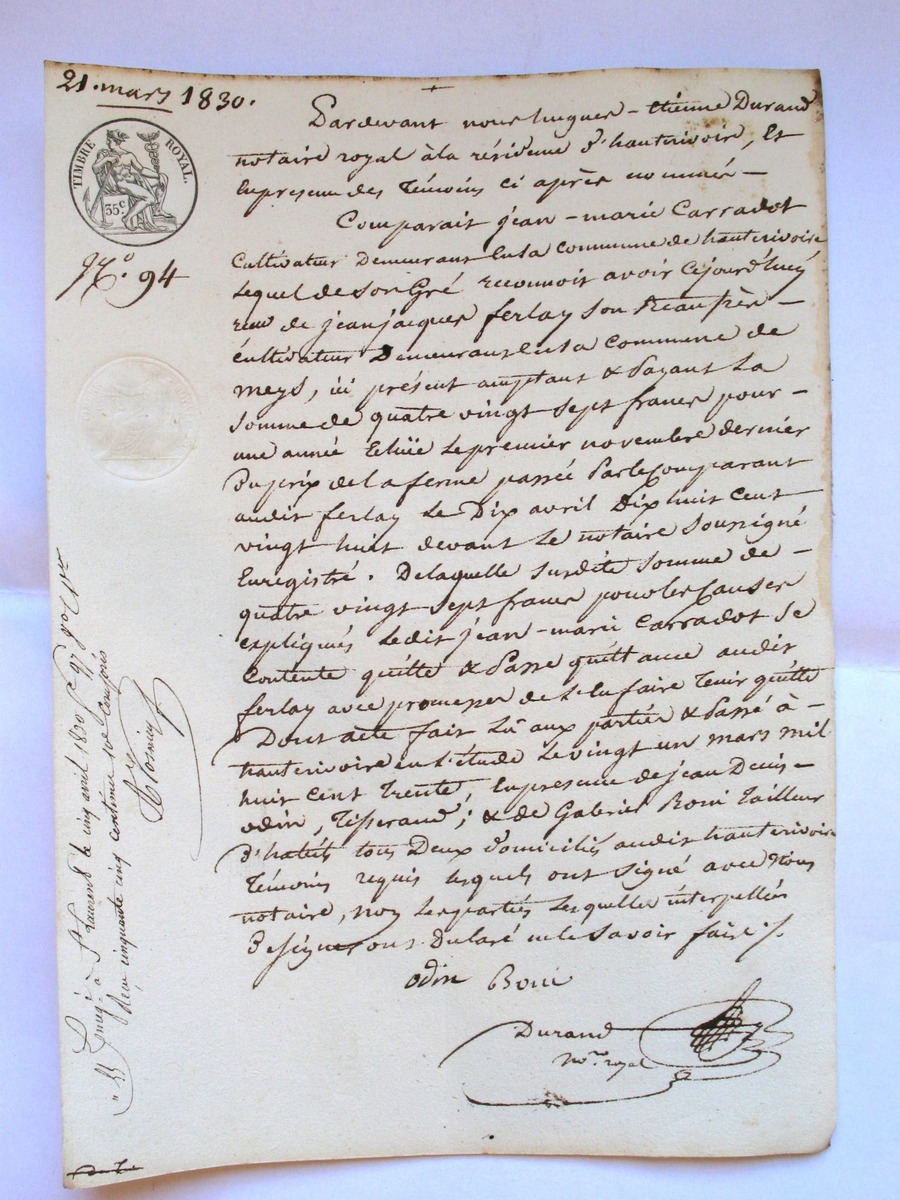 21. mars 1830.
TIMBRE ROYAL.
35c
No. 94
Pardevant nous hugues-étienne Durand
notaire royal à la résidence d'hauterivoire, Et
En presence des Témoins ci après nommés -
Comparait jean-marie Carradot
Cultivateur Demeurant En la commune de hauterivoire
Lequel de son Gré reconnoit avoir Cejourd'huy
reçu de jean jacques ferlay son Beaufrère -
cultivateur Demeurant En la Commune de
meys, ici présent acceptant & Payant La
Somme de quatre vingt sept francs pour -
une année Echüe Le premier novembre dernier
Du prix de la ferme passée Par le Comparant
audit ferlay Le Dix avril Dix huit Cent
vingt huit devant Le notaire Soussigné
Enregistré. De laquelle Surdite Somme de -
quatre vingt sept francs pour les Causes
expliqués Ledit jean-marie Carradot Se
Contente quitte & Passe quittance audit
ferlay avec promesse de L'En faire Tenir quitte
Dont acte fait Lû aux parties & Passé à -
hauterivoire en L'étude Le vingt un mars mil
huit Cent Trente, En presence de jean Denis -
odin, Tisserand; & de Gabriel Boni Tailleur
d'habits tous Deux Domiciliés audit hauterivoire
Témoins requis lesquels ont Signé avec Nous
notaire, non Les parties Lesquelles interpellées
De signer ont Déclaré ne le Savoir faire ./.
odin Boni
Durand
nore. royal
Enreg. à St Laurent le cinq avril 1830
Reçu cinquante cinq centimes